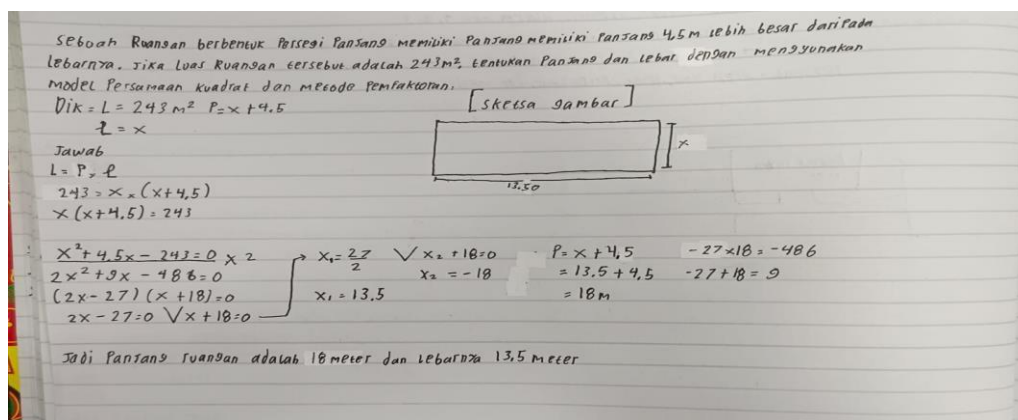 Sebuah Ruangan berbentuk Persegi Panjang memiliki Panjang memiliki Panjang 4,5 M lebih besar daripada
lebarnya. Jika Luas Ruangan tersebut adalah 243 m², tentukan Panjang dan lebar dengan menggunakan
model Persamaan kuadrat dan metode Pemfaktoran.
Dik = L = 243 m² P = x + 4.5
l = x
[sketsa gambar]
x
13.50
Jawab
L = P × l
243 = x × (x + 4,5)
x (x + 4,5) = 243
x² + 4,5x - 243 = 0 x 2
2x² + 9x - 486 = 0
(2x - 27) (x + 18) = 0
2x - 27 = 0 V x + 18 = 0
x₁ = 27/2 V x₂ + 18 = 0
x₂ = -18
x₁ = 13.5
P = x + 4,5
= 13.5 + 4,5
= 18 m
-27 x 18 = -486
-27 + 18 = 9
Jadi Panjang ruangan adalah 18 meter dan lebarnya 13,5 meter